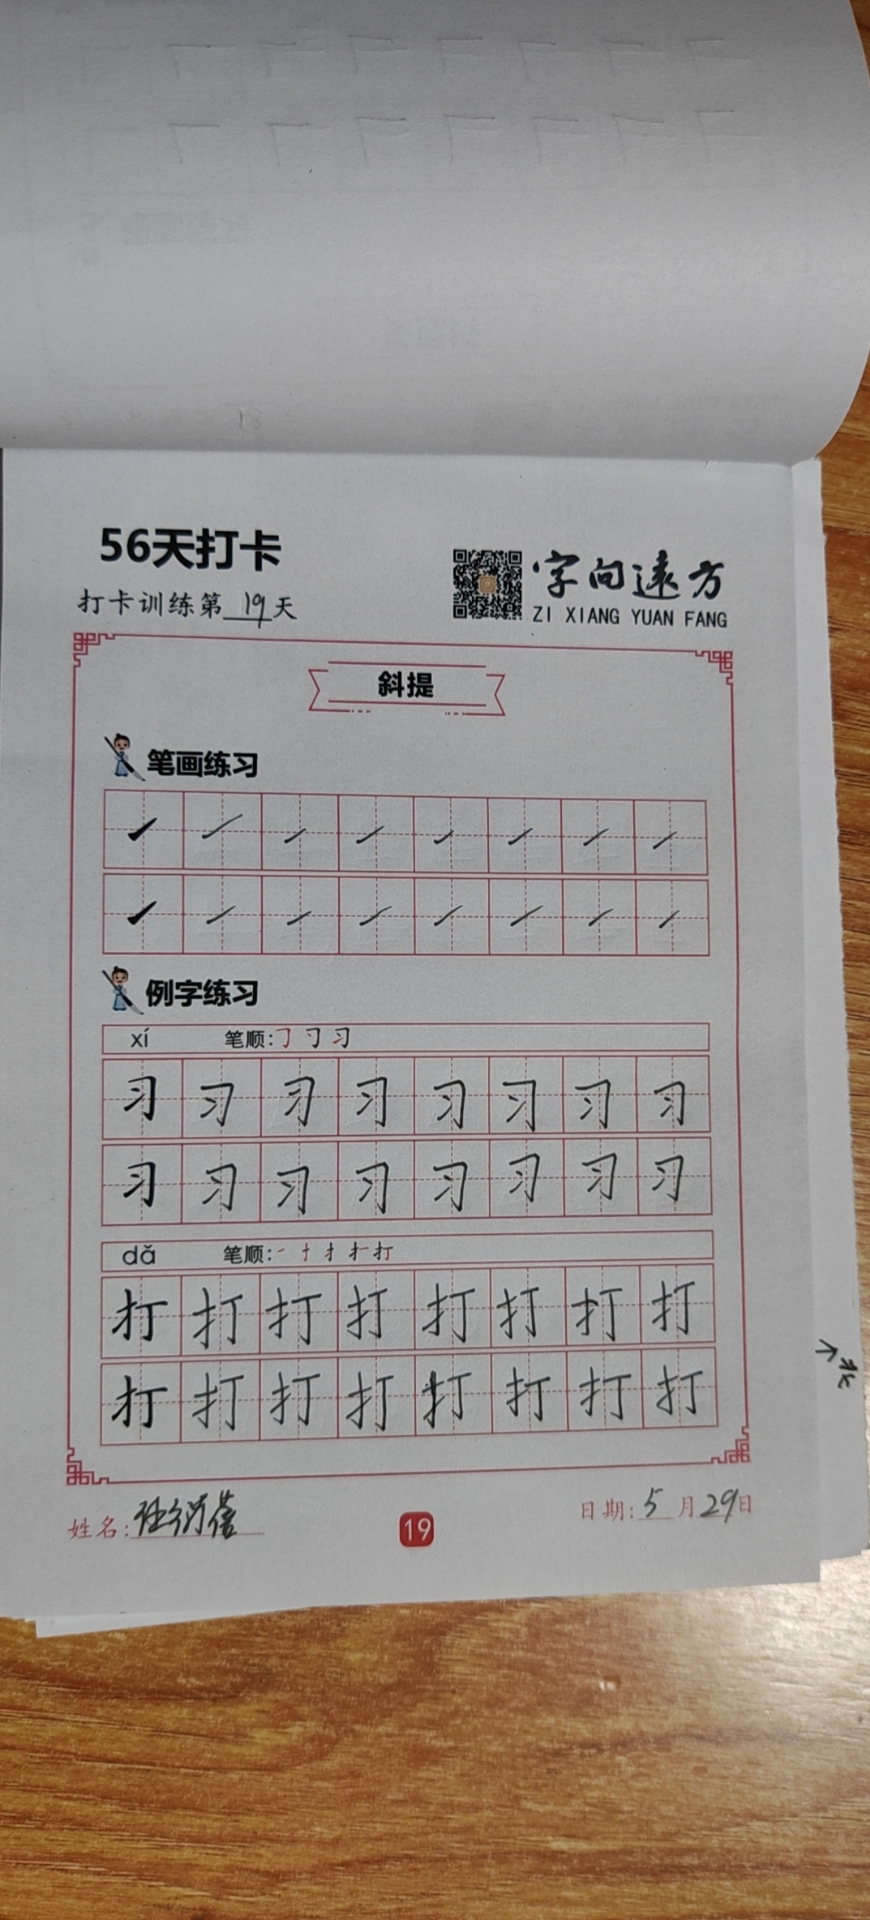 56天打卡
打卡训练第19天
字向遠方
ZI XIANG YUAN FANG
斜提
笔画练习
例字练习
xí 笔顺:
习 习 习 习 习 习 习 习
习 习 习 习 习 习 习 习
dǎ 笔顺:
打 打 打 打 打 打 打 打
打 打 打 打 打 打 打 打
姓名:
19
日期:5月29日